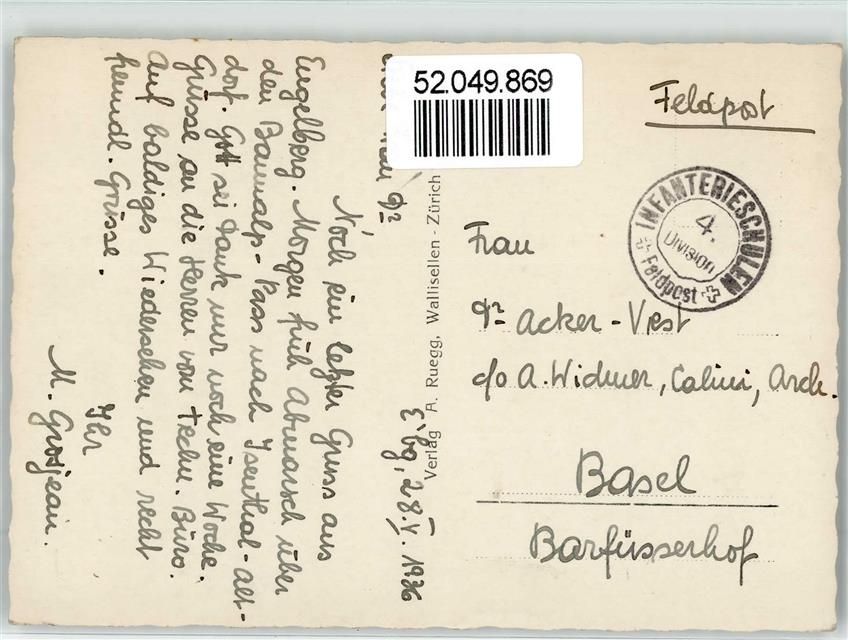 52.049.869
Feldpost
INFANTERIESCHULEN
4.
DIVISION
Feldpost
Frau
Dr Acker-Vest
c/o A. Widmer, Calini, Arch.
Basel
Barfüsserhof
Verlag A. Ruegg, Wallisellen - Zürich
E'bg, 28.V.1936
Dr
Noch ein letzter Gruss aus
Engelberg. Morgen früh Abmarsch über
den Bannalp-Pass nach Isenthal-Alt-
dorf. Gott sei Dank nur noch eine Woche.
Grüsse an die Herren vom techn. Büro.
Auf baldiges Wiedersehen und recht
freundl. Grüsse.
Ihr
M. Grosjean.